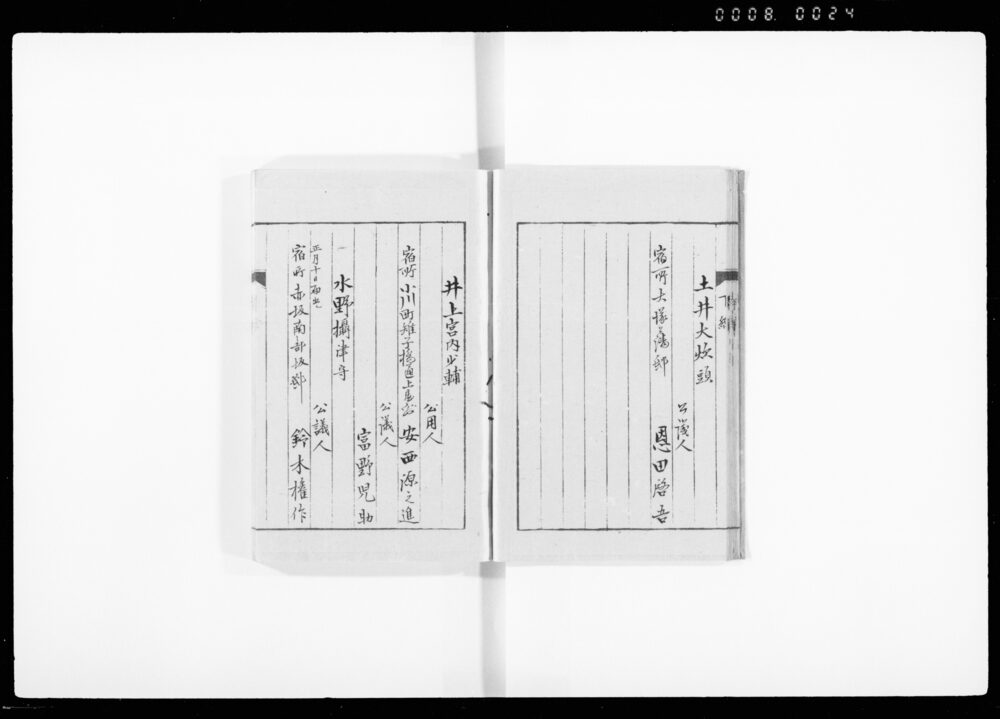 0008. 0024
下総
土井大炊頭
公議人
宿所大塚藩邸
恩田啓吾
井上宮内少輔
公用人
宿所小川町雉子橋通上屋敷
安西源之進
公議人
富野児助
一
水野攝津守
正月十日
公議人
宿所赤坂南部坂邸
鈴木権作